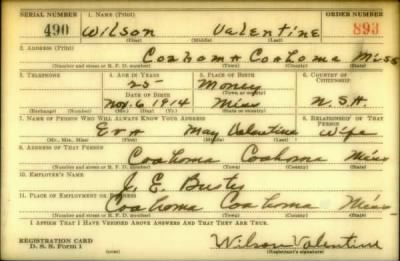 SERIAL NUMBER 1. NAME (Print) ORDER NUMBER
490 Wilson Valentine 893
(First) (Middle) (Last)
2. ADDRESS (Print)
Coahoma Coahoma Miss
(Number and street or R. F. D. number) (Town) (County) (State)
3. TELEPHONE 4. AGE IN YEARS 5. PLACE OF BIRTH 6. COUNTRY OF CITIZENSHIP
25 Money
DATE OF BIRTH (Town or county)
Nov. 6, 1914 Miss U.S.A.
(Exchange) (Number) (Mo.) (Day) (Yr.) (State or country)
7. NAME OF PERSON WHO WILL ALWAYS KNOW YOUR ADDRESS 8. RELATIONSHIP OF THAT PERSON
Eva May Valentine Wife
(Mr., Mrs., Miss) (First) (Middle) (Last)
9. ADDRESS OF THAT PERSON
Coahoma Coahoma Miss
(Number and street or R. F. D. number) (Town) (County) (State)
10. EMPLOYER'S NAME
J. E.
11. PLACE OF EMPLOYMENT OR BUSINESS
Coahoma Coahoma Miss
(Number and street or R. F. D. number) (Town) (County) (State)
I AFFIRM THAT I HAVE VERIFIED ABOVE ANSWERS AND THAT THEY ARE TRUE.
REGISTRATION CARD Wilson Valentine
D. S. S. Form 1 (Registrant's signature)